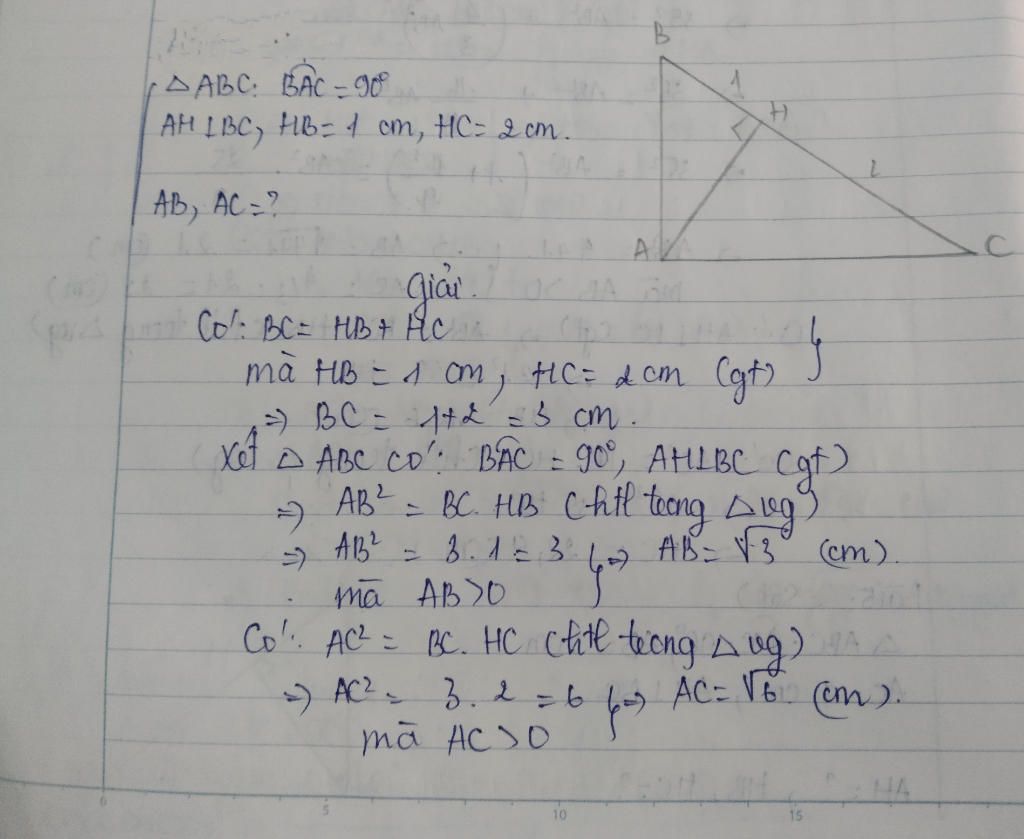 △ABC: BAC = 90°
AH⊥BC, HB = 1 cm, HC = 2 cm.
AB, AC = ?
B
1
H
2
A
C
Giải.
Có: BC = HB + HC
mà HB = 1 cm, HC = 2 cm (gt) }
=> BC = 1+2 = 3 cm.
Xét △ ABC có: BAC = 90°, AH⊥BC (gt)
=> AB² = BC. HB (htl trong △ vg)
=> AB² = 3.1 = 3 } => AB = √3 (cm).
mà AB > 0
Có: AC² = BC. HC (htl trong △ vg)
=> AC² = 3. 2 = 6 } => AC = √6 (cm).
mà AC > 0
0 5 10 15